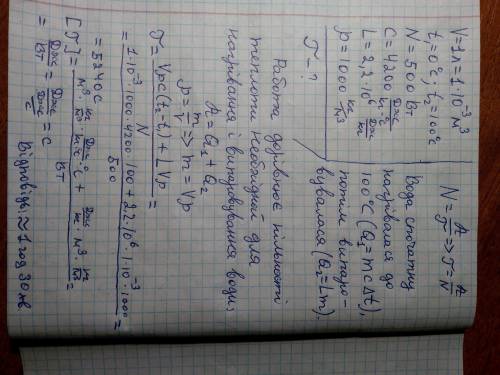 V=1л=1·10⁻³ м³
t₁=0°C, t₂=100°C
N=500 Вт
C=4200 Дж/кг·°C
L=2,2·10⁶ Дж/кг
ρ=1000 кг/м³
T-?
N=A/T => T=A/N
Вода спочатку
нагрівалася до
100°C (Q₁=mcΔt),
потім випаро-
вувалася (Q₂=Lm).
Работа дорівнює кількості
теплоти необхідной для
нагрівання і випаровування води:
A=Q₁+Q₂
ρ=m/V => m=Vρ
T=(Vρc(t₂-t₁)+LVρ)/N=
=(1·10⁻³·1000·4200·100+2,2·10⁶·1·10⁻³·1000)/500=
=5240c
[T]=(м³·кг/м³·Дж/кг·°C·°C+Дж/кг·м³·кг/м³)/Вт=
=Дж/Вт=Дж/(Дж/c)=c
Відповідь: ≈1 год 30 хв